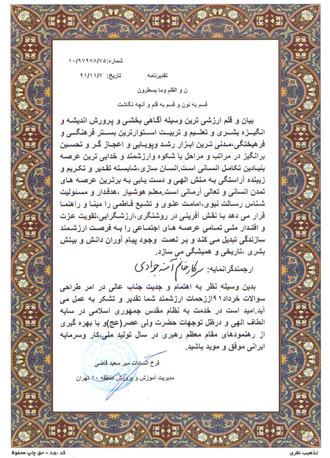 شماره:۱۰/۹۷۹۷۸/۷۵
تقدیرنامه
تاریخ: ۹۱/۱۱/۷
ن و القلم وما یسطرون
قسم به نون و قسم به قلم و آنچه نگاشت
بیان و قلم ارزشی ترین وسیله آگاهی بخشی و پرورش اندیشه و
انگیزه بشری و تعلیم و تربیت استوارترین بستر فرهنگی و
فرهیختگی،مدنی ترین ابزار رشد وپویایی و اعجاز گر و تحسین
برانگیز در مراتب و مراحل با شکوه وارزشمند و خدایی ترین عرصه
بنیادین تکامل انسانی است.انسان سازی،شایسته تقدیر و تکریم و
زیبنده آراستگی به منش الهی و دست یابی به برترین عرصه های
تمدن انسانی و تعالی آرمانی است.معلم هوشیار ،هدفدار و مسئولیت
شناس رسالت نبوی،امامت علوی و تشیع فاطمی را مبنا و راهنما
قرار می دهد با نقش آفرینی در روشنگری،ارزشگرایی،تقویت عزت
و اقتدار ملی تمامی عرصه های اجتماعی را به فرصت ارزشمند
سازندگی تبدیل می کند و بر نعمت وجود پیام آوران دانش و بینش
بشری، تاریخی و همیشگی می سازد.
ارجمندگرانمایه: سرکارخانم آمنه جوادی
بدین وسیله نظر به اهتمام و جدیت جناب عالی در امر طراحی
سوالات خرداد۹۱اززحمات ارزشمند شما تقدیر و تشکر به عمل می
آید.امید است در خدمت به نظام مقدس جمهوری اسلامی در سایه
الطاف الهی و درظل توجهات حضرت ولی عصر(عج)و با بهره گیری
از رهنمودهای مقام معظم رهبری در سال تولید ملی،کار وسرمایه
ایرانی موفق و موید باشید.
فرخ السادات میر سعید قاضی
مدیریت آموزش و پرورش منطقه ۱۰ تهران
تذهیب نظری
کد :۸۵ - حق چاپ محفوظ